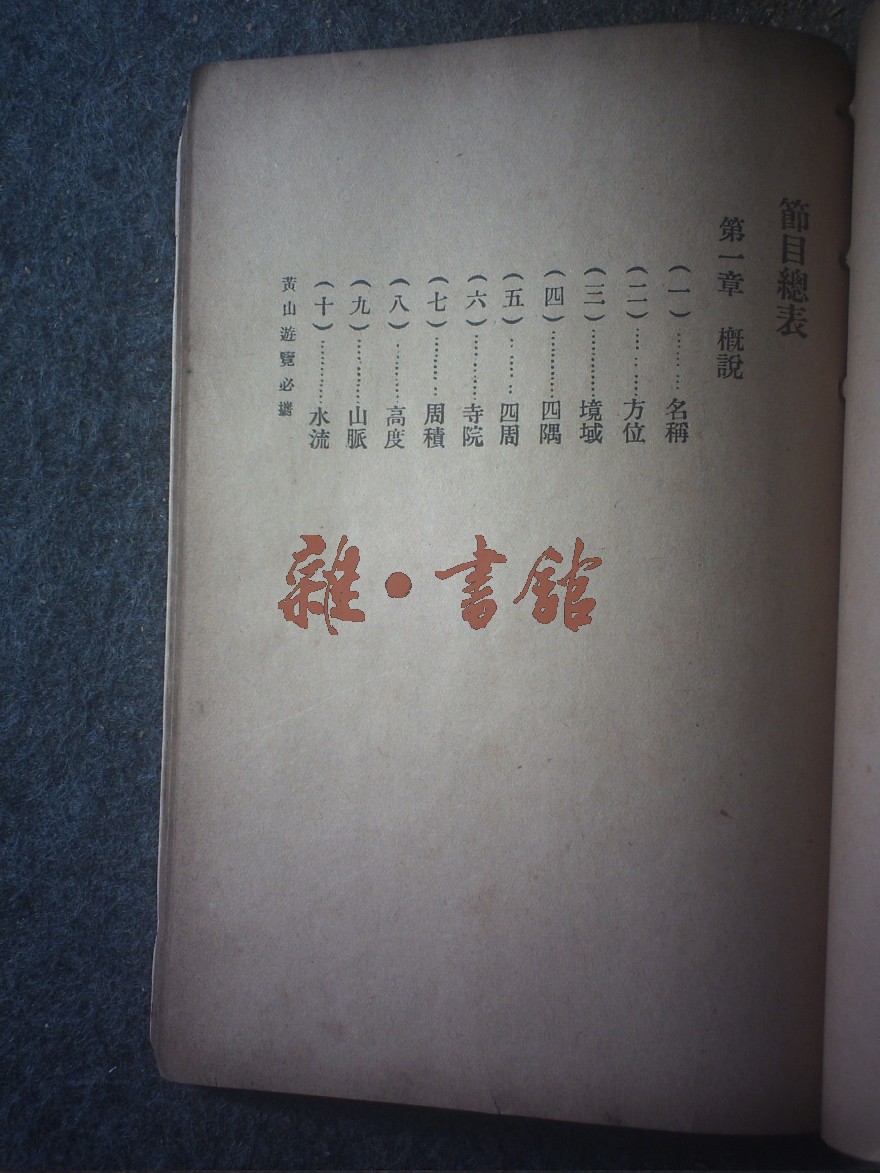 節目總表
第一章　概說
(一)………名稱
(二)………方位
(三)………境域
(四)………四隅
(五)………四周
(六)………寺院
(七)………周積
(八)………高度
(九)………山脈
(十)………水流
黃山遊覽必攜
雜・書館